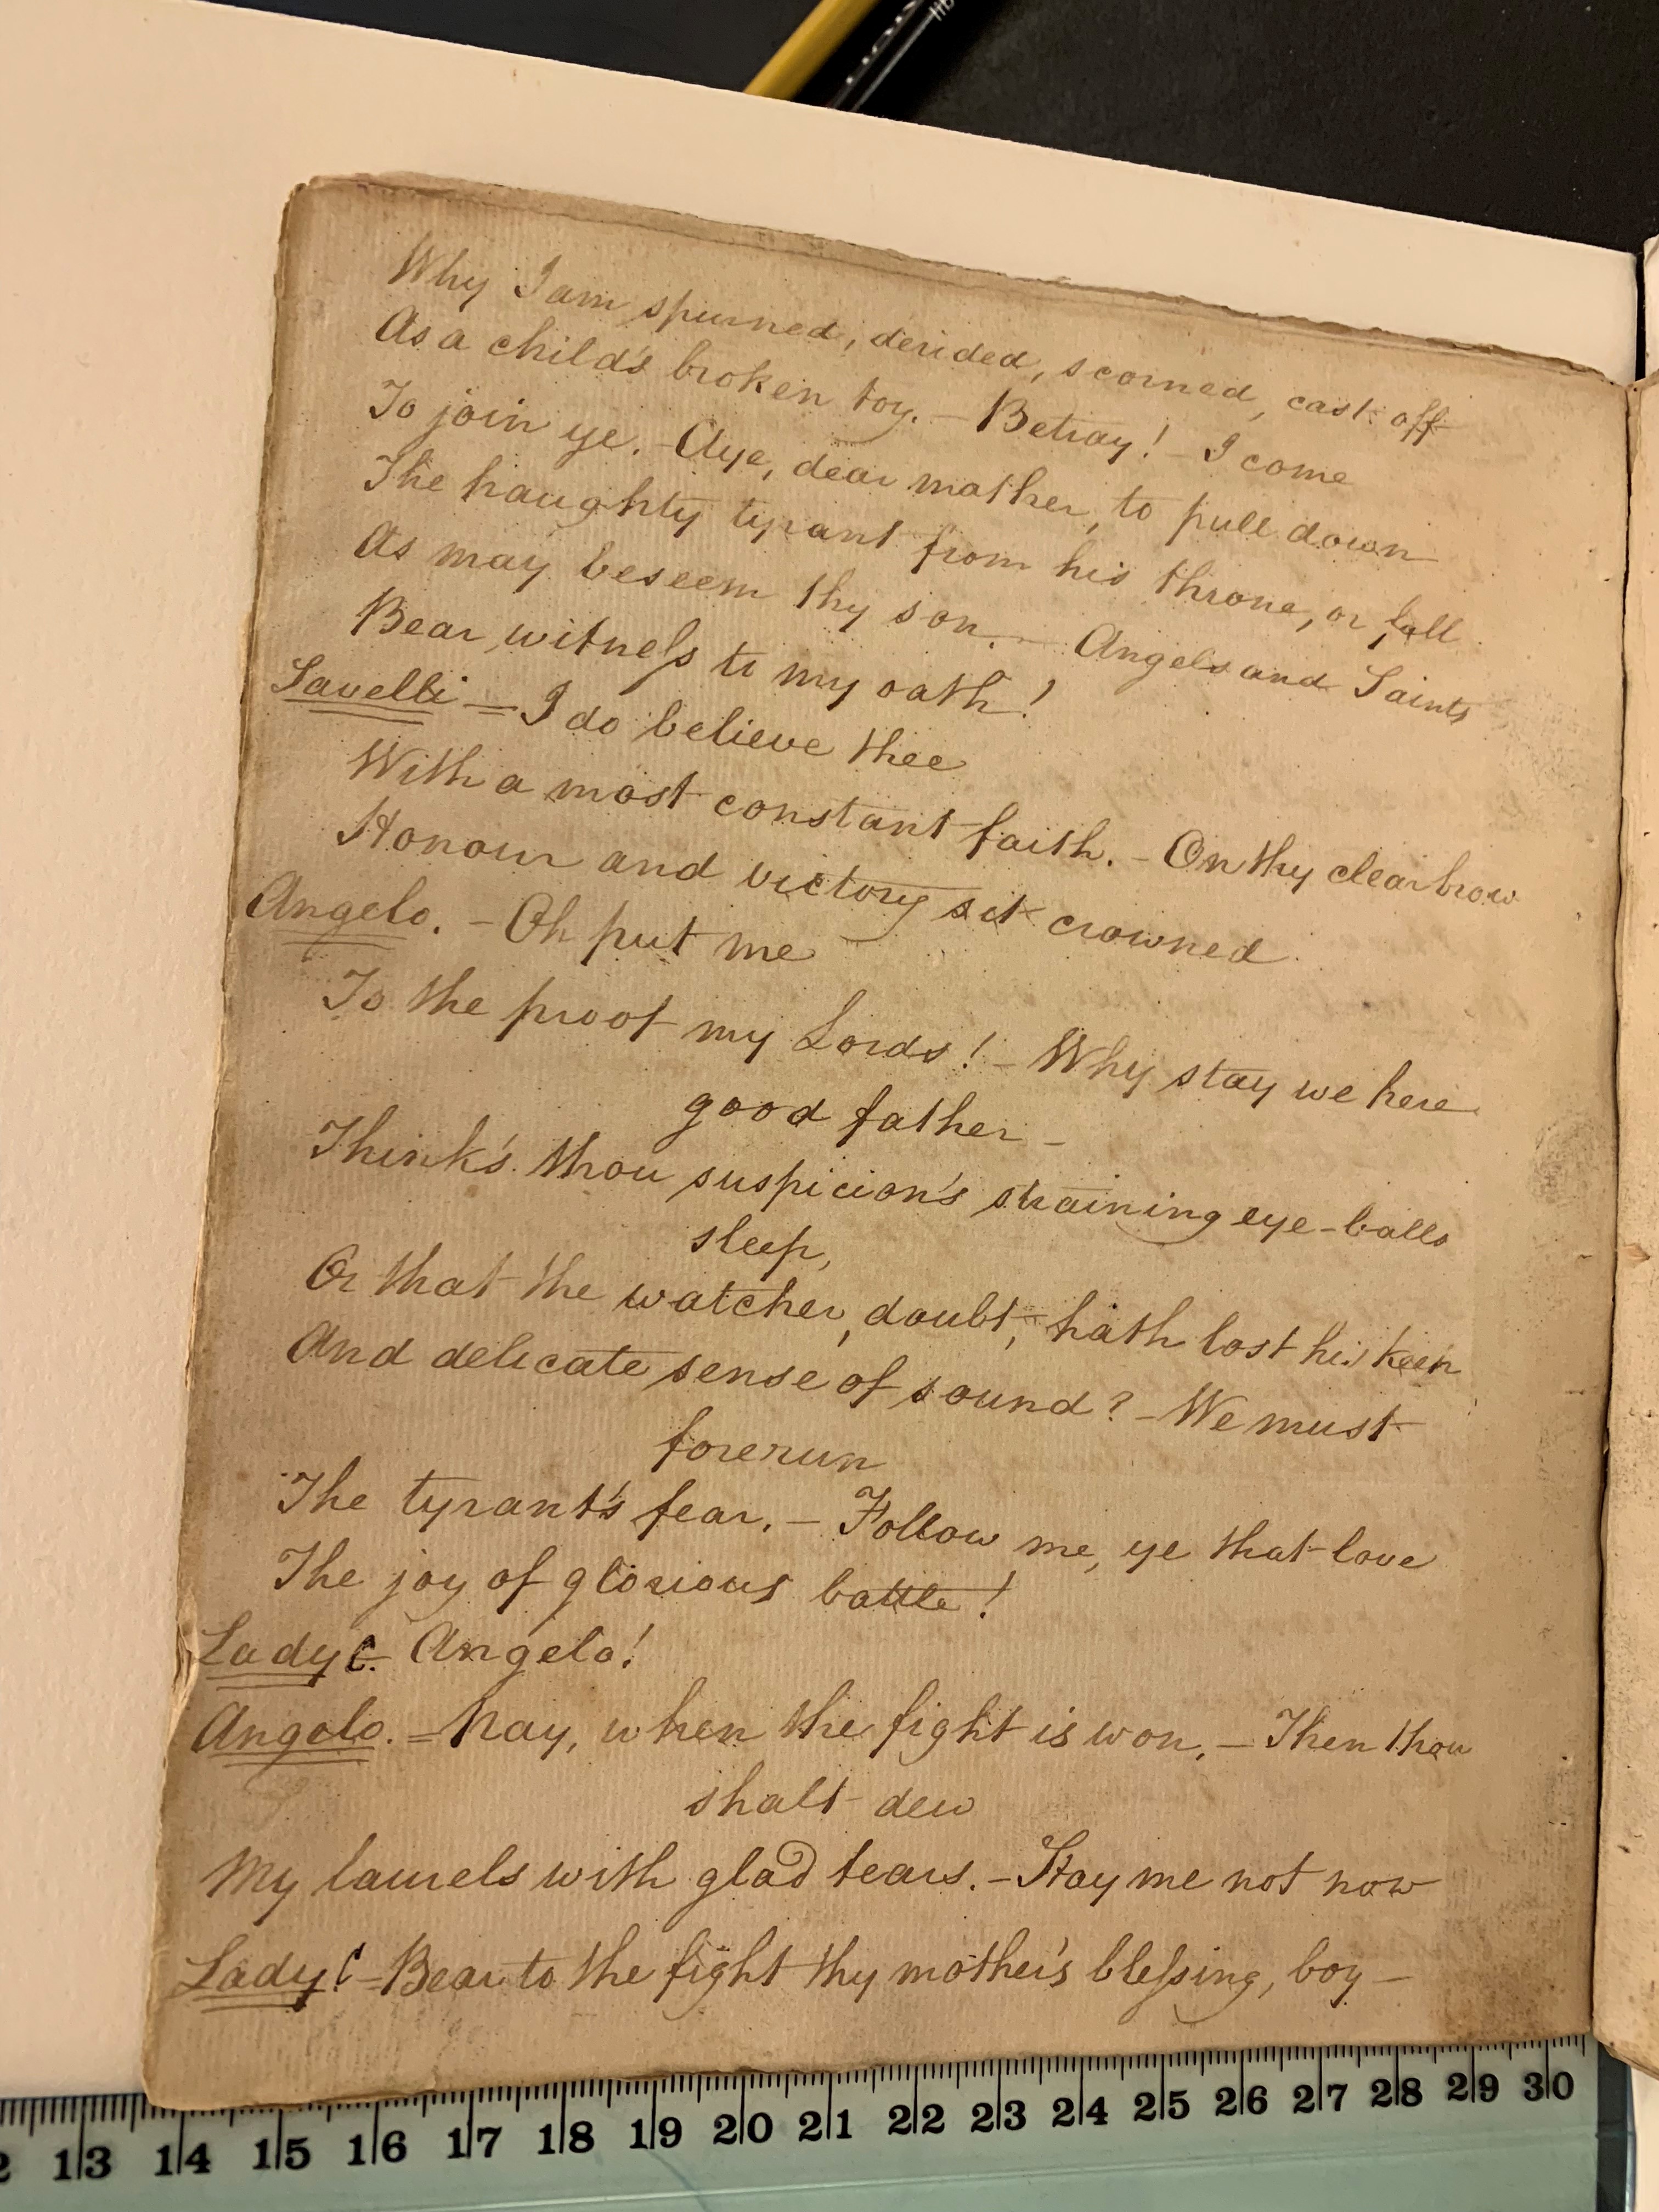 Why I am spurned, derided, scorned, cast off
As a child's broken toy. – Betray! – I come
To join ye. – Aye, dear mother, to pull down
The haughty tyrant from his throne, or fall
As may beseem thy son. – Angels and Saints
Bear witneſs to my oath!
Savelli = I do believe thee
With a most constant faith. – On thy clear brow
Honour and victory sit crowned
Angelo. – Oh put me
To the proof my Lords! – Why stay we here
good father –
Think's thou suspicion's straining eye-balls
sleep,
Or that the watcher, doubt, hath lost his keen
And delicate sense of sound? – We must
forerun
The tyrant's fear. – Follow me, ye that love
The joy of glorious battle!
Lady C. Angelo!
Angelo. = Nay, when the fight is won. – Then thou
shalt dew
My laurels with glad tears. – Stay me not now
Lady C = Bear to the fight thy mother's bleſsing, boy –
13 14 15 16 17 18 19 20 21 22 23 24 25 26 27 28 29 30